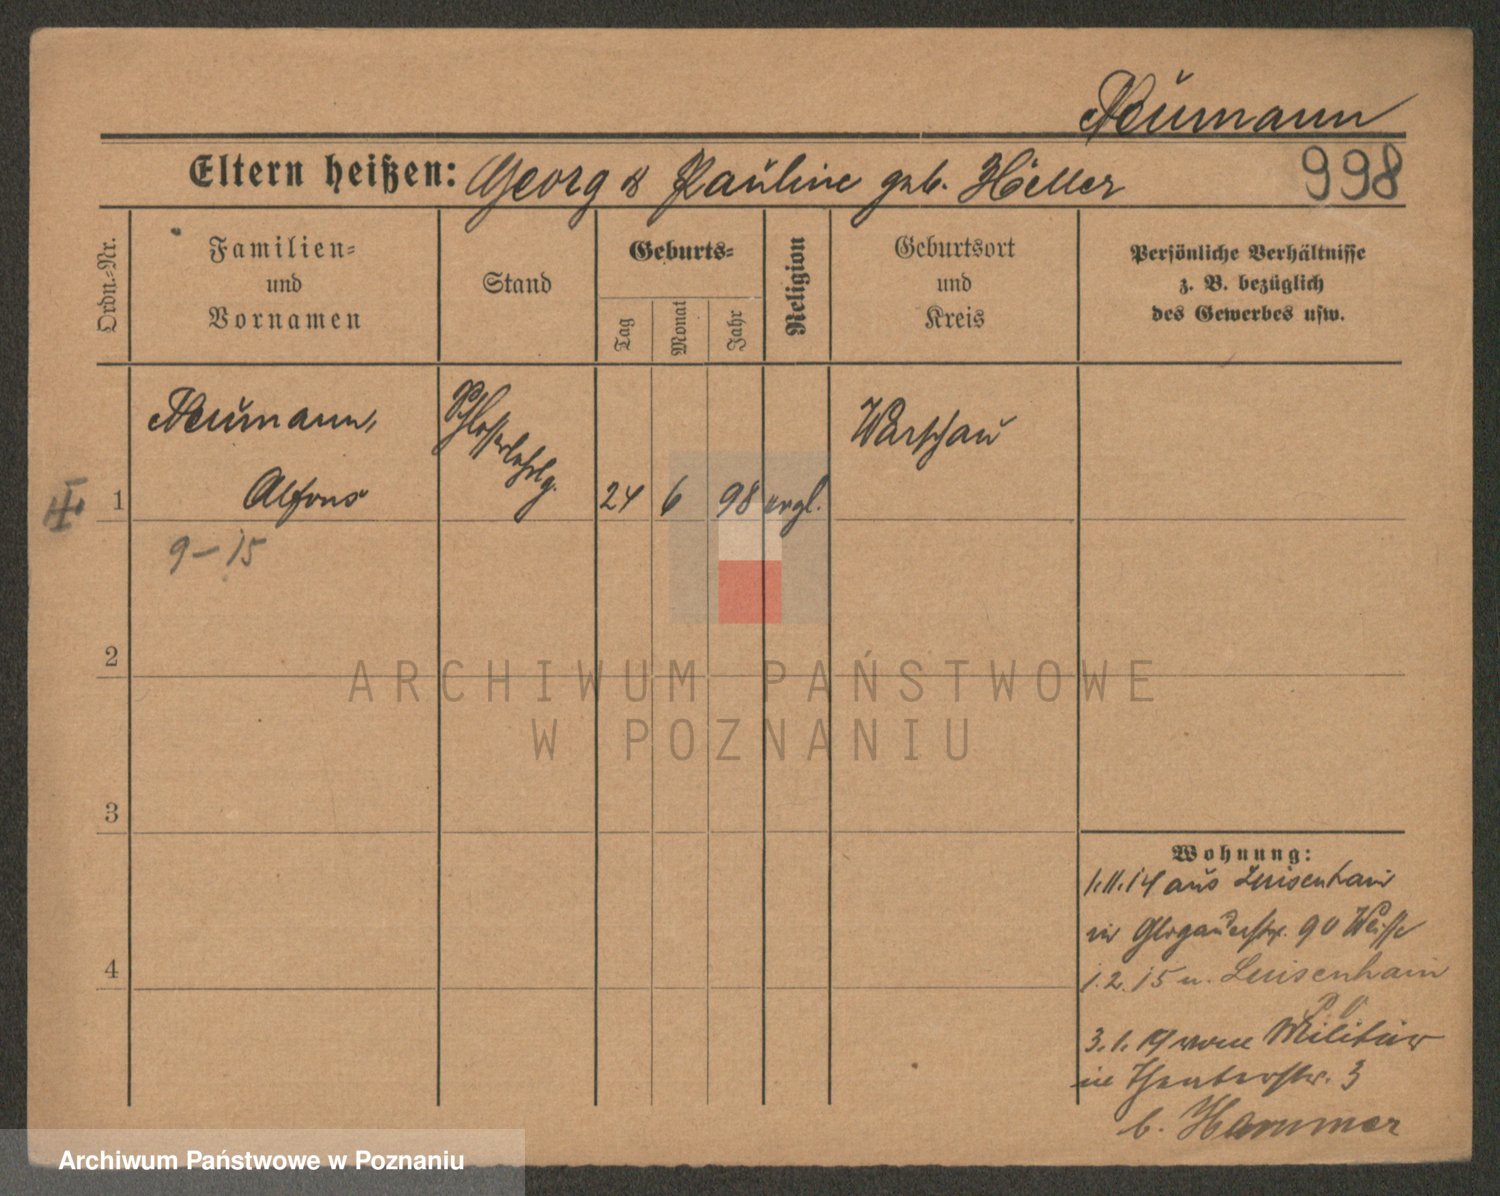 Neumann
Eltern heißen: Georg & Pauline geb. Heller
998
Ordn.=Nr.
Familien=
und
Vornamen
Stand
Geburts=
Tag
Monat
Jahr
Religion
Geburtsort
und
Kreis
Persönliche Verhältnisse
z. B. bezüglich
des Gewerbes usw.
1
Neumann,
Alfons
Schlosserlehrlg.
24 6 98 evgl.
Warschau
9–15
2
3
4
Wohnung:
1.11.14 aus Luisenhain
in Glogauerstr. 90 Weisse
1.2.15 n. Luisenhain
3.1.19 vom Militär
in 3
b. Hammer
ARCHIWUM PAŃSTWOWE
W POZNANIU
Archiwum Państwowe w Poznaniu